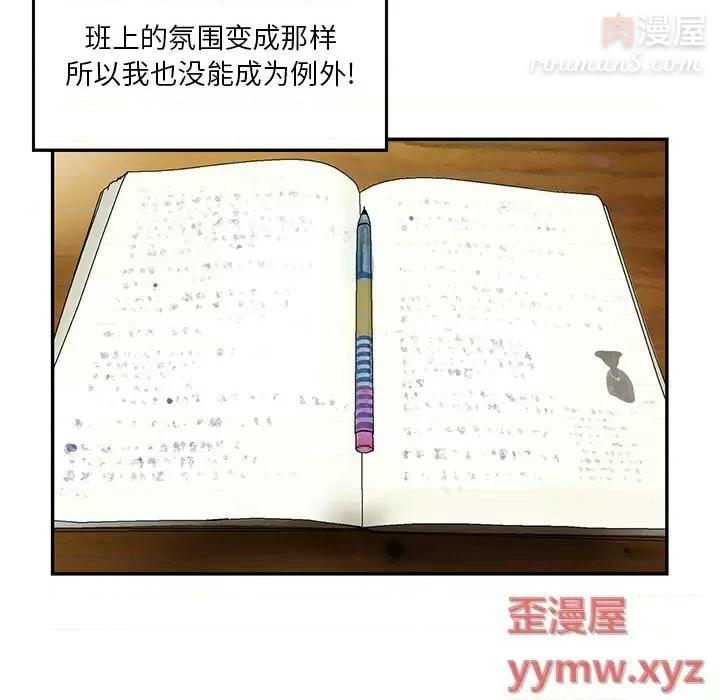 肉漫屋
班上的氛围变成那样
rouman5.com
所以我也没能成为例外!
歪漫屋
yymw.xyz